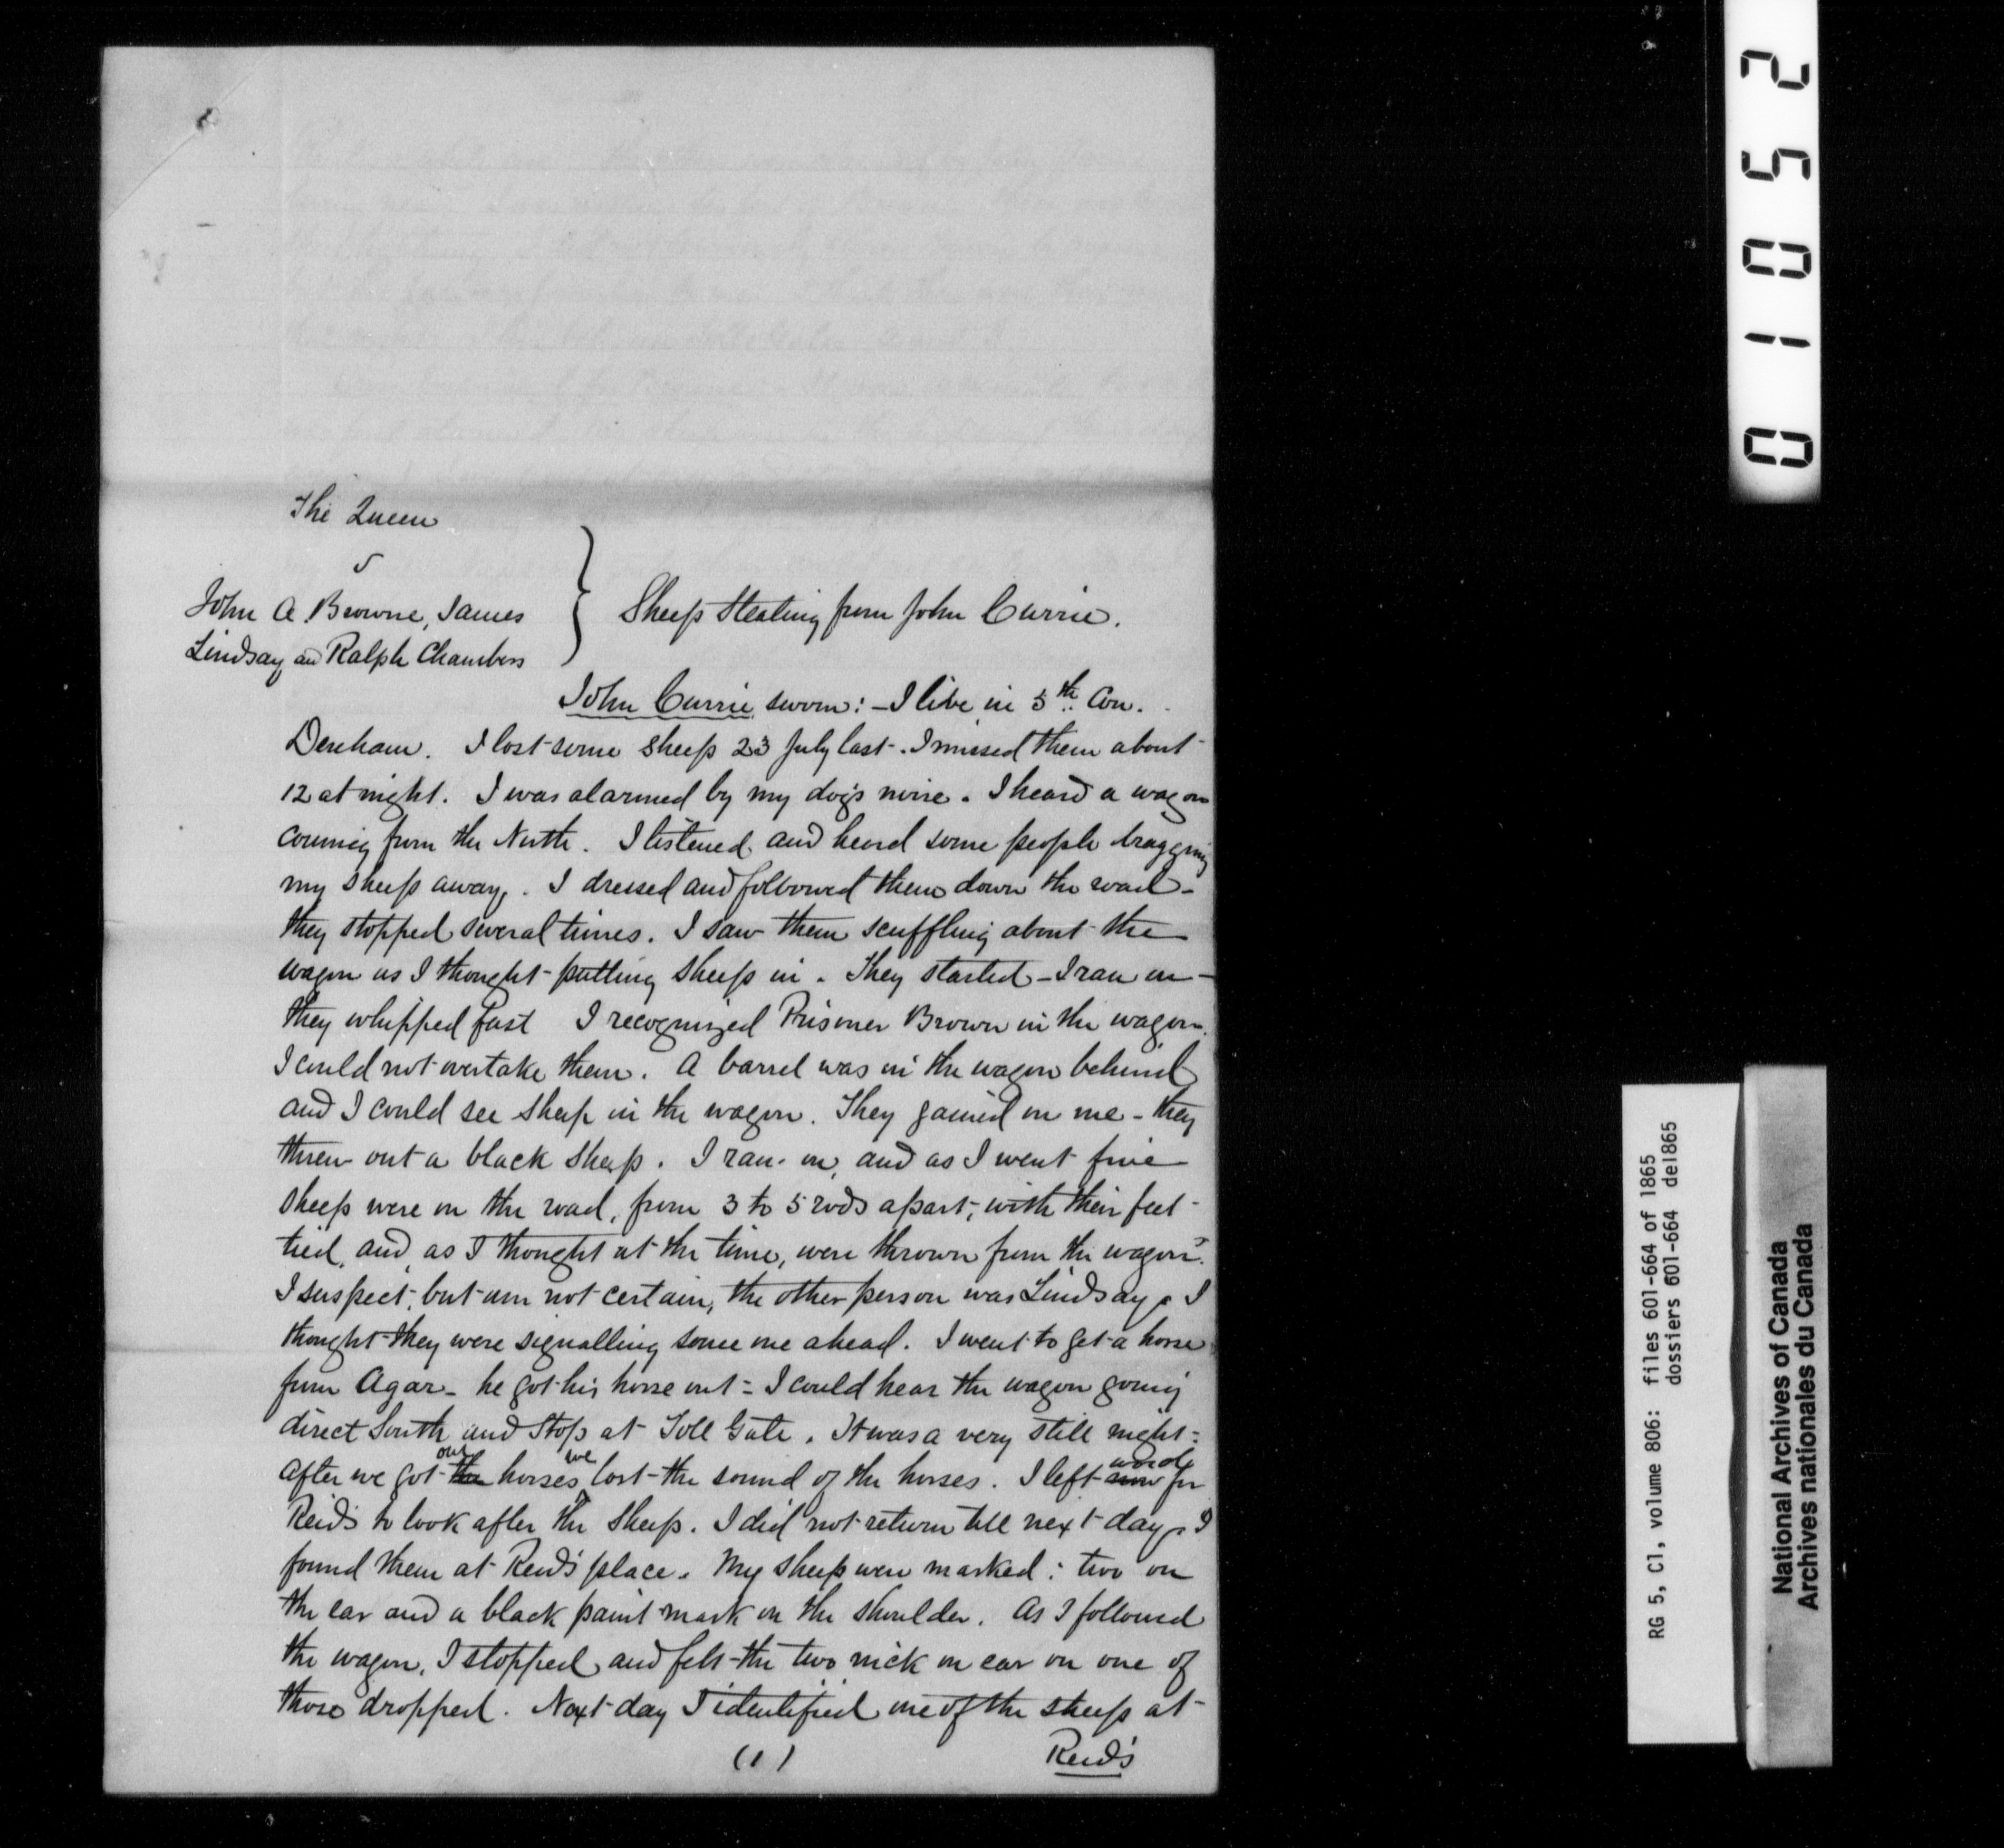 The Queen
v
John A. Browne, James
Lindsay and Ralph Chambers
} Sheep Stealing from John Currie.
John Currie, sworn: – I live in 5th Con.
Dereham. I lost some sheep 23 July last. I missed them about
12 at night. I was alarmed by my dog's noise. I heard a wagon
coming from the North. I listened and heard some people dragging
my sheep away. I dressed and followed them down the road –
they stopped several times. I saw them scuffling about the
wagon as I thought putting sheep in. They started – I ran on –
they whipped fast I recognized Prisoner Brown in the wagon.
I could not overtake them. A barrel was in the wagon behind
and I could see sheep in the wagon. They gained on me – they
threw out a black sheep. I ran on, and as I went five
sheep were on the road, from 3 to 5 rods apart, with their feet
tied, and, as I thought at the time, were thrown from the wagon.
I suspect, but am not certain, the other person was Lindsay. I
thought they were signalling some one ahead. I went to get a horse
from Agar – he got his horse out = I could hear the wagon going
direct South and Stop at Toll Gate. It was a very still night =
After we got the our horses we lost the sound of the horses. I left word for
Reid's to look after the sheep. I did not return till next day. I
found them at Reid's place. My sheep were marked: two on
the ear and a black paint mark on the shoulder. As I followed
the wagon, I stopped and felt the two nick on ear on one of
those dropped. Next day I identified one of the sheep at
(1) Reid's
01052
RG 5, C1, volume 806: files 601-664 of 1865
dossiers 601-664 de1865
National Archives of Canada
Archives nationales du Canada